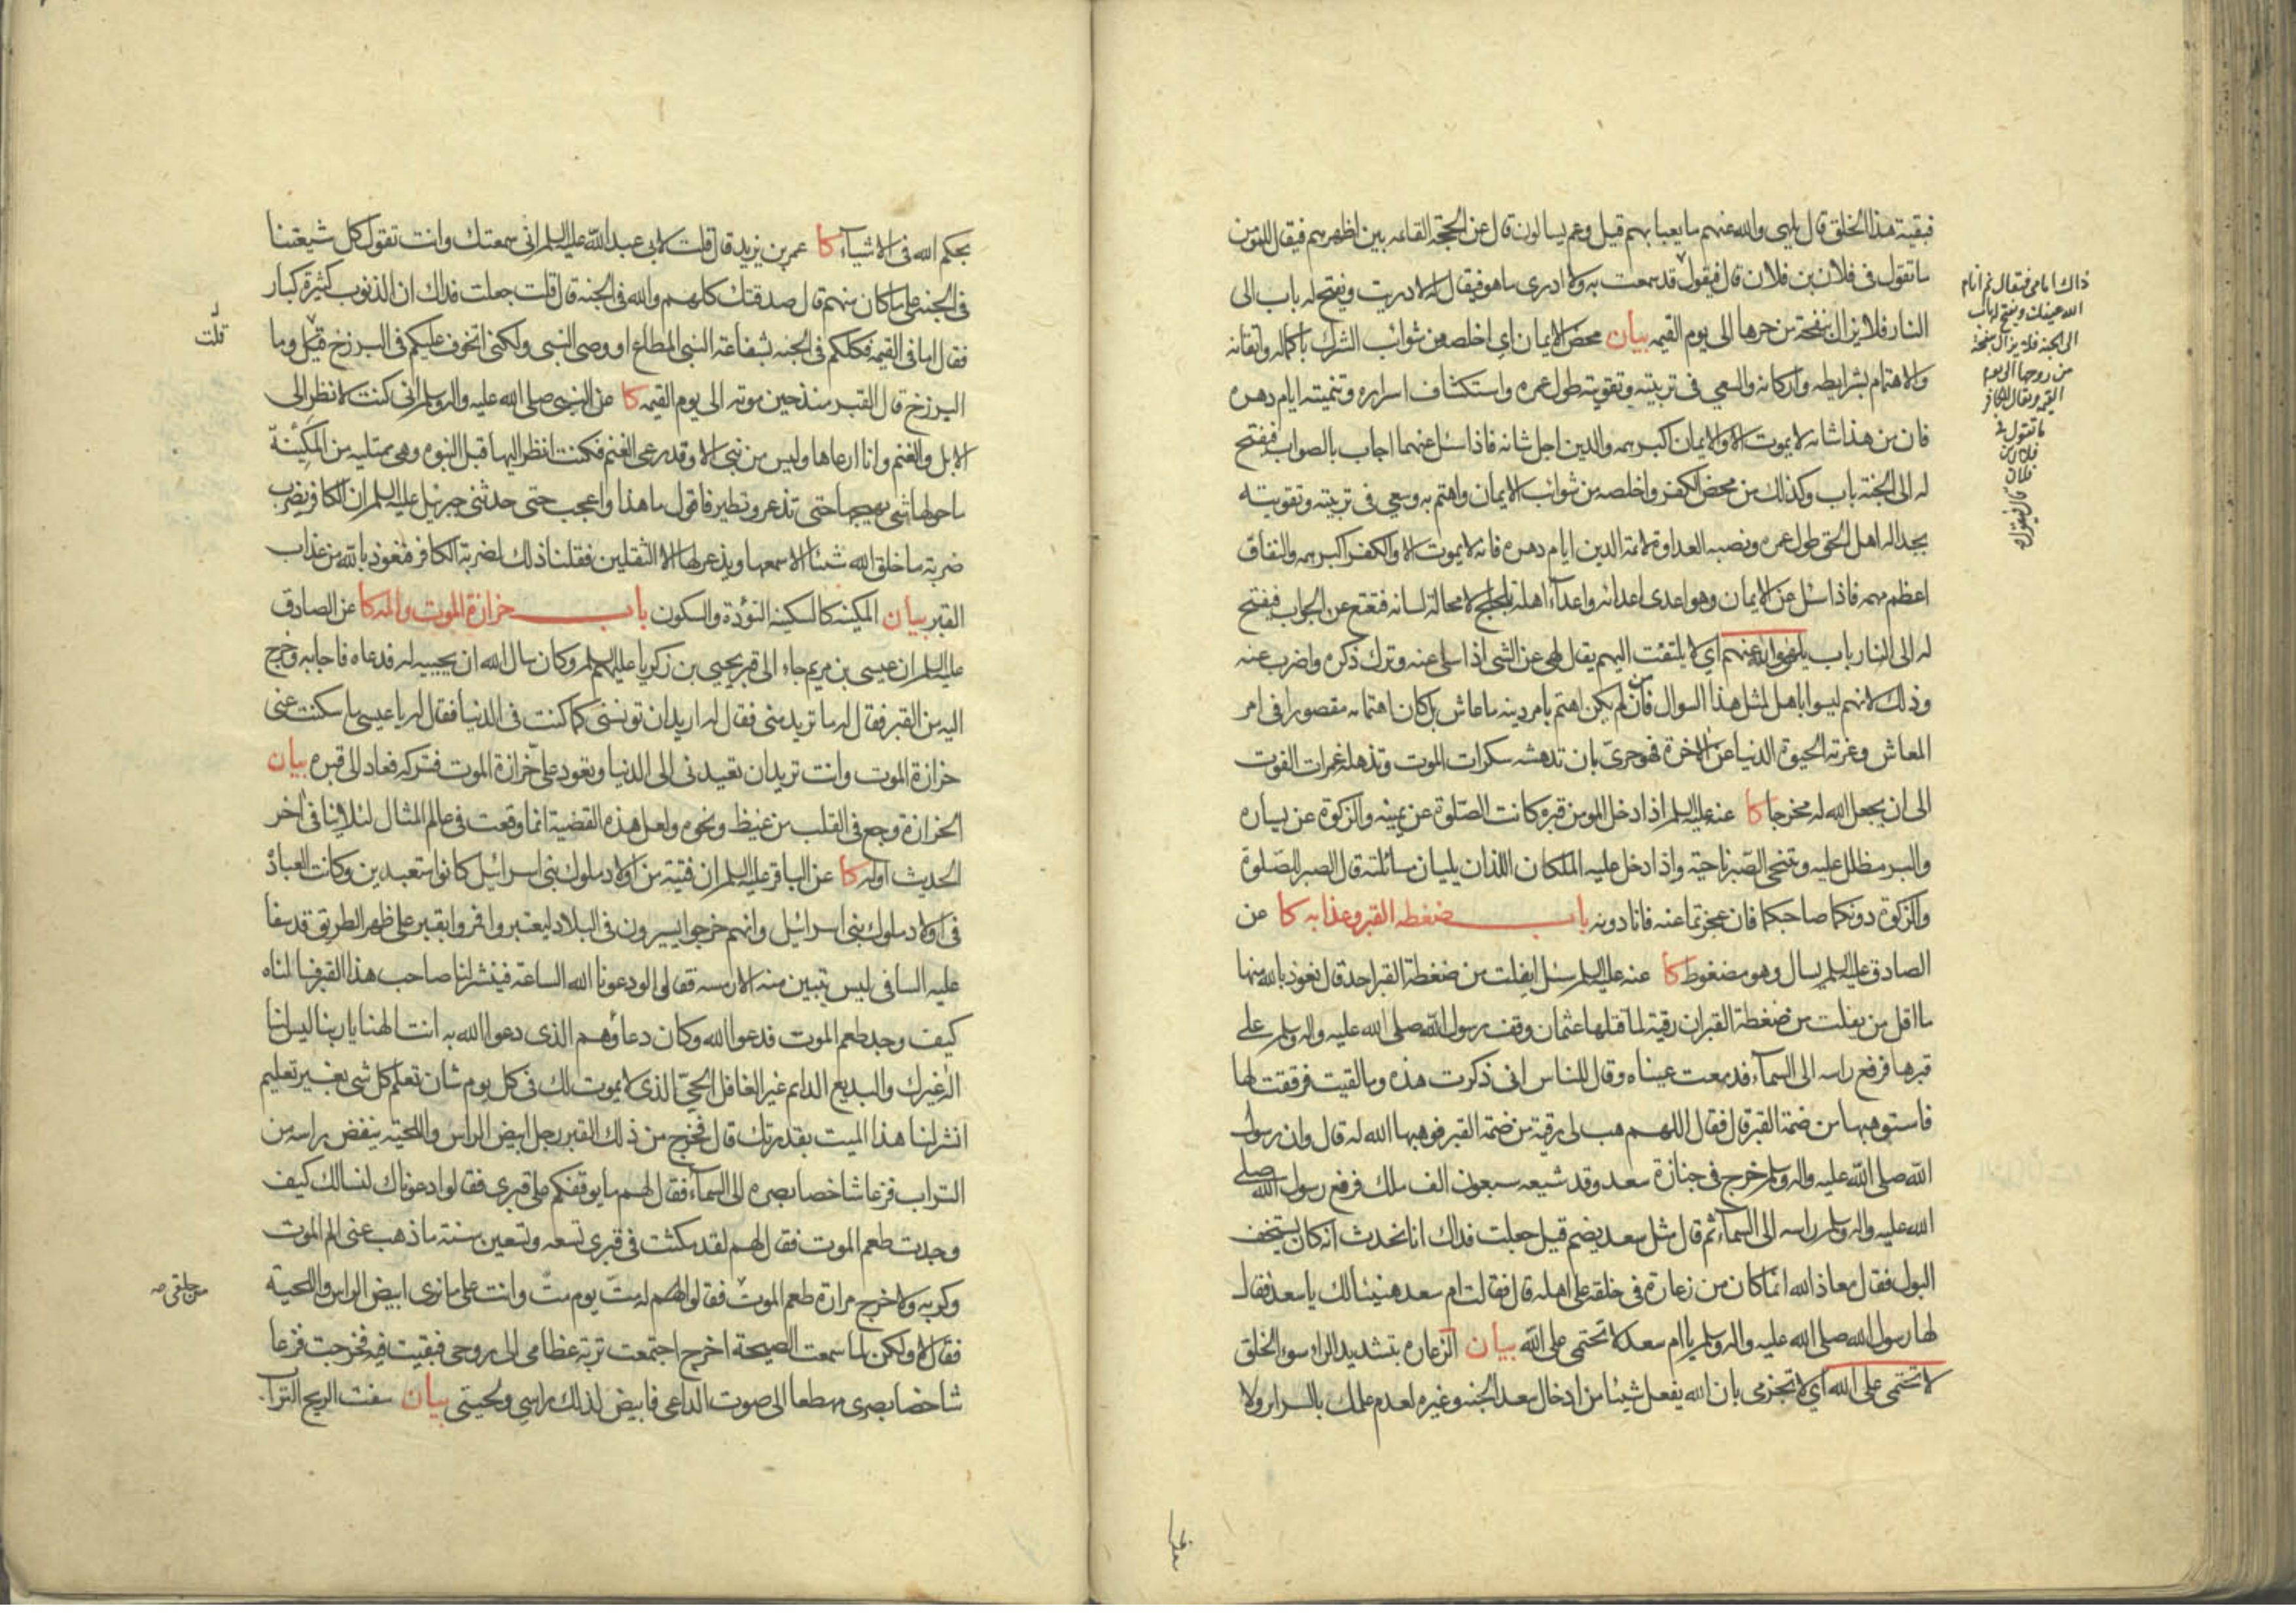 فبقية هذا الخلق قال يلهى والله عنهم ما يعبأ بهم قيل وعم يسالون قال عن الحجة القاعه بين اظهرهم فيقال للمومن
ما تقول فى فلان بن فلان قال فيقول قد سمعت به ولا ادرى ما هو فيقال له لا دريت ويفتح له باب الى
النار فلا يزال بنفحة من حرها الى يوم القيمه بيان محض الايمان اى اخلصه من شوائب الشرك باكماله واتقانه
والاهتمام بشرايطه واركانه والسعى فى تربيته وتقويته طول عمره واستكشاف اسراره وتنميته ايام دهره
فان من هذا شانه لا يموت الا والايمان اكبر همه والدين اجل شانه فاذا سئل عنهما اجاب بالصواب فيفتح
له الى الجنة باب وكذلك من محض الكفر واخلصه من شوائب الايمان واهتم به وسعى فى تربيته وتقويته
بجداله اهل الحق طول عمره ونصبه العداوة لائمة الدين ايام دهره فانه لا يموت الا والكفر اكبر همه والنفاق
اعظم مهمه فاذا سئل عن الايمان وهو اعدى اعدائه واعداء اهله تلجلج لا محالة لسانه فتعتع عن الجواب فيفتح
له الى النار باب يلهى والله عنهم اى لا يلتفت اليهم يقال لهى عن الشى اذا سلى عنه وترك ذكره واضرب عنه
وذلك لانهم ليسوا باهل لمثل هذا السوال فان من لم يكن اهتم بامر دينه ما عاش بل كان اهتمامه مقصورا فى امر
المعاش وغرته الحيوة الدنيا عن الاخرة فهو حرى بان تدهشه سكرات الموت وتذهله غمرات الفوت
الى ان يجعل الله له مخرجا كا عنه عليه السلم اذا دخل المومن قبره كانت الصلوة عن يمينه والزكوة عن يساره
والبر مظلل عليه وتنحى الصبر ناحية واذا دخل عليه الملكان اللذان يليان سائلته قال الصبر للصلوة
والزكوة دونكما صاحبكما فان عجزتما عنه فانا دونه باب ضغطه القبر وعذابه كا عن
الصادق عليه السلم يسال وهو مضغوط كا عنه عليه السلم سئل ايفلت من ضغطة القبر احد قال نعوذ بالله منها
ما اقل من يفلت من ضغطة القبر ان رقية لما قتلها عثمان وقف رسول الله صلى الله عليه واله وسلم على
قبرها فرفع راسه الى السماء فدمعت عيناه وقال للناس انى ذكرت هذه وما لقيت فرققت لها
فاستوهبها من ضمة القبر قال فقال اللهم هب لى رقية من ضمة القبر فوهبها الله له قال وان رسول
الله صلى الله عليه واله وسلم خرج فى جنازة سعد وقد شيعه سبعون الف ملك فرفع رسول الله صلى
الله عليه واله وسلم راسه الى السماء ثم قال مثل سعد يضم قيل جعلت فداك انا نحدث انه كان يستخف
البول فقال معاذ الله انما كان من زعارة فى خلقه على اهله قال فقالت ام سعد هنيئا لك يا سعد فقال
لها رسول الله صلى الله عليه واله وسلم يا ام سعد لا تحتمى على الله بيان الزعاره بتشديد الراء سوء الخلق
لا تحتمى على الله اى لا تجزمى بان الله يفعل شيئا من ادخال سعد الجنه وغيره لعدم علمك بالسراير ولا
ذاك امامى فيقال نم انام
الله عينك ويفتح له باب
الى الجنة فلا يزال بنفحة
من روحها الى يوم
القيمه ويقال للكافر
ما تقول فى
فلان بن
فلان
قال فيقول
بحكم الله فى الاشياء كا عمر بن يزيد قال قلت لابى عبد الله عليه السلم انى سمعتك وانت تقول كل شيعتنا
فى الجنه على ما كان منهم قال صدقتك كلهم والله فى الجنة قال قلت جعلت فداك ان الذنوب كثيرة كبار
فقال اما فى القيمه فكلكم فى الجنه بشفاعة النبى المطاع او وصى النبى ولكنى اتخوف عليكم فى البرزخ قيل وما
البرزخ قال القبر منذ حين موته الى يوم القيمه كا عن النبى صلى الله عليه واله وسلم انى كنت لانظر الى
الابل والغنم وانا ارعاها وليس من نبى الا وقد رعى الغنم فكنت انظر اليها قبل النبوه وهى ممتليه من المكينة
ما حولها شى يهيجها حتى تذعر وتطير فاقول ما هذا واعجب حتى حدثنى جبرئيل عليه السلم ان الكافر يضرب
ضربة ما خلق الله شيئا الا سمعها ويذعر لها الا الثقلين فقلنا ذلك لضربة الكافر فنعوذ بالله من عذاب
القبر بيان المكينه كالسكينه التؤدة والسكون باب حزازة الموت والمه كا عن الصادق
عليه السلم ان عيسى بن مريم جاء الى قبر يحيى بن زكريا عليهم السلم وكان سال الله ان يحييه له فدعاه فاجابه وخرج
اليه من القبر فقال له ما تريد منى فقال له اريد ان تونسنى كما كنت فى الدنيا فقال له يا عيسى ما سكنت عنى
حزازة الموت وانت تريدان تعيدنى الى الدنيا ويعود على حزازة الموت فتركه فعاد الى قبره بيان
الحزازة وجع فى القلب من غيظ ونحوه ولعل هذه القضية انما وقعت فى عالم المثال لئلا ينافى اخر
الحديث اوله كا عن الباقر عليه السلم ان فتية من اولاد ملوك بنى اسرائيل كانوا متعبدين وكانت العبادة
فى اولاد ملوك بنى اسرائيل وانهم خرجوا يسيرون فى البلاد ليعتبروا فمروا بقبر على ظهر الطريق قد سفا
عليه السافى ليس تبين منه الا رسمه فقالوا لو دعونا الله الساعة فينشر لنا صاحب هذا القبر فسالناه
كيف وجد طعم الموت فدعوا الله وكان دعاؤهم الذى دعوا الله به انت الهنا يا ربنا ليس لنا
اله غيرك والبديع الدايم غير الغافل الحى الذى لا يموت لك فى كل يوم شان تعلم كل شى بغير تعليم
انشر لنا هذا الميت بقدرتك قال فخرج من ذلك القبر رجل ابيض الراس واللحيته ينفض راسه من
التراب فزعا شاخصا بصره الى السماء فقال لهم ما يوقفكم على قبرى فقالوا دعوناك لنسالك كيف
وجدت طعم الموت فقال لهم لقد مكثت فى قبرى تسعه وتسعين سنة ما ذهب عنى الم الموت
وكربه ولا خرج مرارة طعم الموت فقالوا لهم له مت يوم مت وانت على ما نرى ابيض الراس واللحية
فقال لا ولكن لما سمعت الصيحة اخرج اجتمعت تربة عظامى الى روحى فبقيت فيه فخرجت فزعا
شاخصا بصرى مهطعا الى صوت الداعى فابيض لذلك راسى ولحيتى بيان سفت الريح التراب
قلت
من حلقى صه